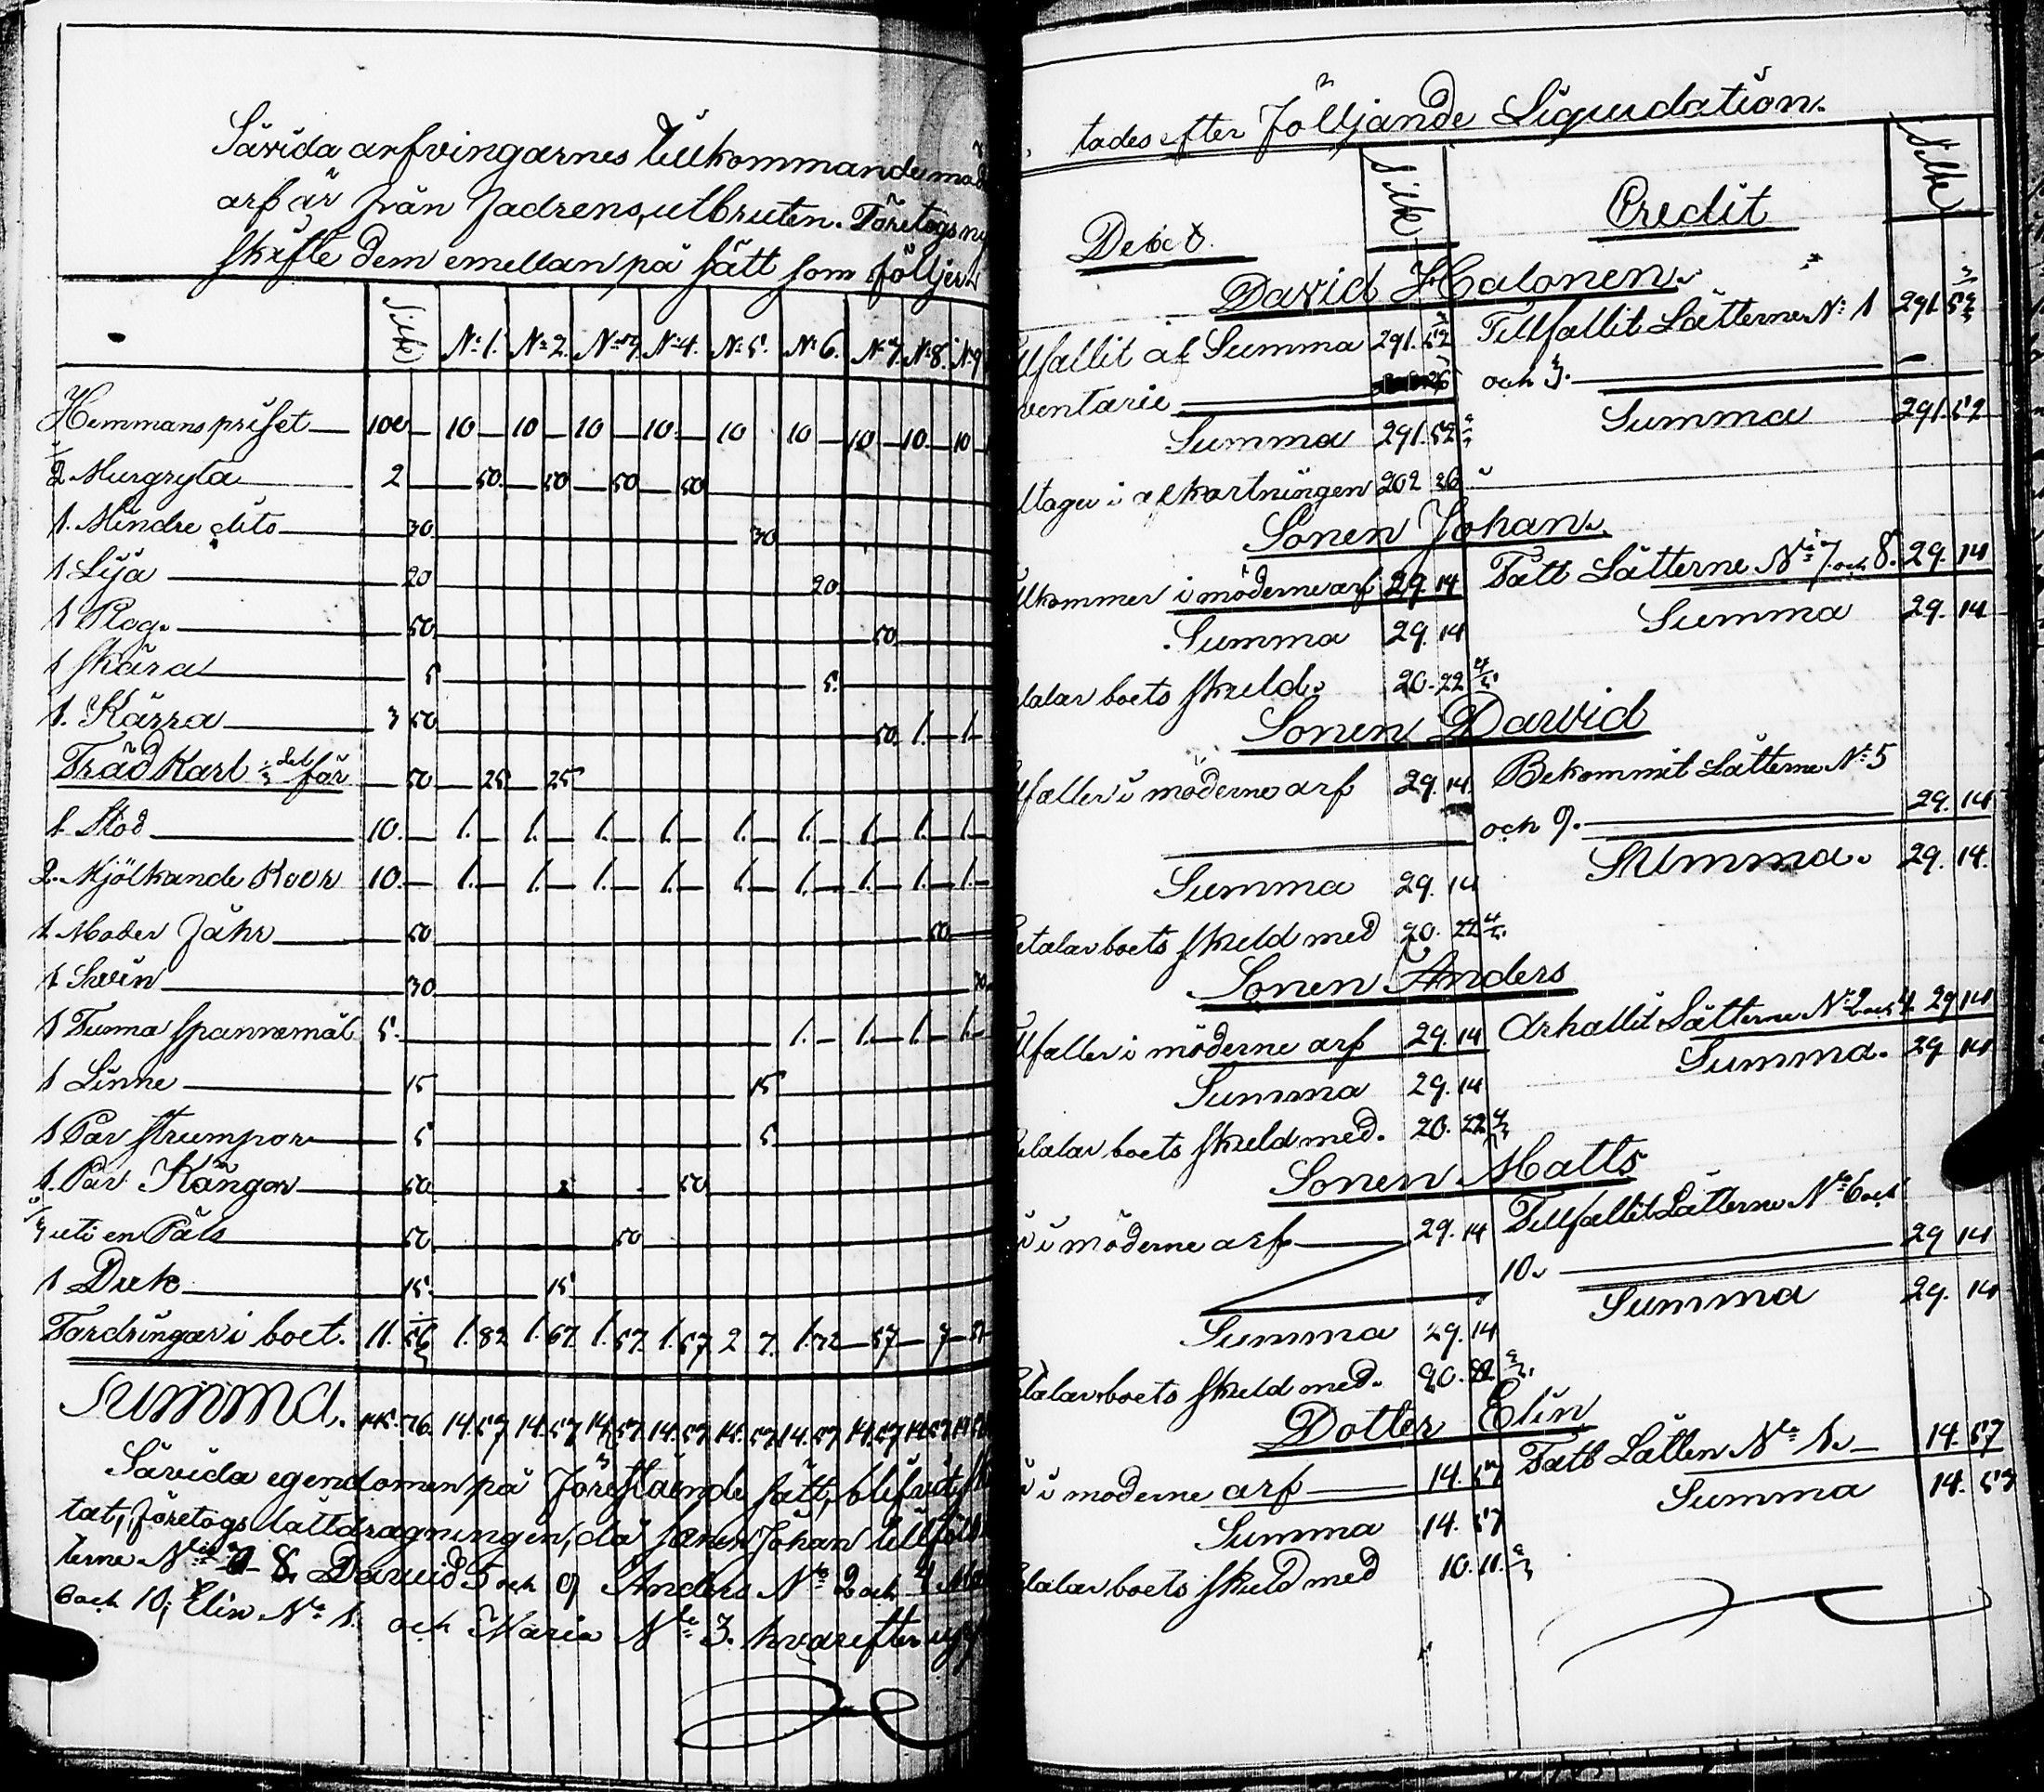 Såvida arfvingarnes tillkommande mö
arf är från fadrens, utbruten. Företogs ny
skifte dem emellan på sätt som följer.
Silfr N:1. N:2. N:3. N:4. N:5. N:6. N:7. N:8. N:9
Hemmanspriset 100 — 10 — 10 — 10 — 10 — 10 10 — 10 — 10 — 10 —
2 Murgryta 2 — 50 — 50 — 50 — 50
1. Mindre dito 30 30
1 Lija 20 20
1 Plog. 50 50
1 skära 5 5.
1. Kärra 3 50 50 1. — 1. —
Träd Karl 50 — 25 — 25
1 Stod 10. — 1. — 1. — 1. — 1. — 1. — 1. — 1. — 1. — 1. —
2. Mjölkande Koor 10. — 1. — 1. — 1. — 1. — 1. — 1. — 1. — 1. — 1. —
1. Moder Fåhr 50 50
1 Swin 30 30
1 Tunna spannemål 5. 1. — 1. — 1. — 1. —
1 Linne 15 15
1 Par strumpor 5 5.
1. Par Kängor 50 50
uti en Päls 50 50
1 Duk 15. 15
Fordringar i boet. 11. 56 1. 82 1. 57. 1. 57. 1. 57 2 7. 1. 72 — 57 — 7 — 57
Summa. 145. 76. 14. 57 14. 57 14. 57. 14. 57 14. 57 14. 57 14. 57 14. 57 14. 57
Såvida egendomen på föreslående sätt, blifvit
tat, företogs lottdragningen, då sonen Johan tillföll
terne N:is 7 8. David 5 och 9 Anders N:o 2 och 4
6 och 10; Elin N:o 1. och Maria N:o 3. hvarefter
tades efter följande Liquidation.
Debet. Silfr Credit Silfr
David Halonen.
llfallit af Summa 291. 52 Tillfallit Lätterne N:1 291. 52
ventarie och 3. —
Summa 291. 52 Summa 291. 52
ltager i afkortningen 202 36
Sonen Johan.
llkommer i möderne arf 29. 14 Fått Lätterne N:is 7. och 8. 29. 14
Summa 29. 14 Summa 29. 14
talar boets skuld. 20. 22 4/5
Sonen David
lfaller i möderne arf 29. 14. Bekommit Lätterne N:5
och 9. 29. 14
Summa 29. 14 Summa. 29. 14.
etalar boets skuld med 20. 22 4/5.
Sonen Anders
llfaller i möderne arf 29. 14 Erhallit Lätterne N:2 och 4. 29 14
Summa 29. 14 Summa. 29 14
etalar boets skuld med. 20. 22 4/5
Sonen Matts
i möderne arf 29. 14 Tillfallit Lätterne N:o 6 och
10. 29 14
Summa 29. 14 Summa 29. 14
talar boets skuld med. 20. 22
Dotter Elin
i moderne arf 14. 57 Fått Lätten N:o 1. — 14. 57
Summa 14. 57 Summa 14. 57
talar boets skuld med 10. 11.